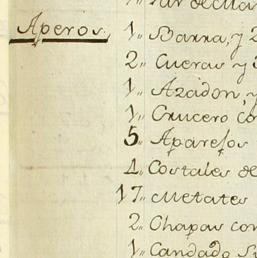 Par de Ma
Aperos.
1,, Barra, y 2
2,, Cueras y
1,, Azadon, y
1,, Crucero co
5,, Aparejos
4,, Costales de
17,, Metates
2,, Chapas con
1,, Candado